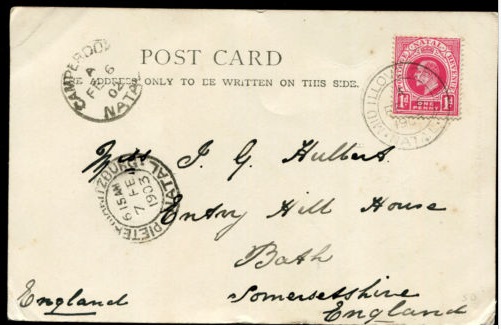 POST CARD
THE ADDRESS ONLY TO BE WRITTEN ON THIS SIDE.
CAMPERDOWN
A
FE 6
02
NATAL
NATAL REVENUE
1D ONE PENNY 1D
PIETERMARITZBURG NATAL
6 15 AM
7 FE
1903
Miss I. G. Hulbert
Entry Hill House
Bath
Somersetshire
England
England